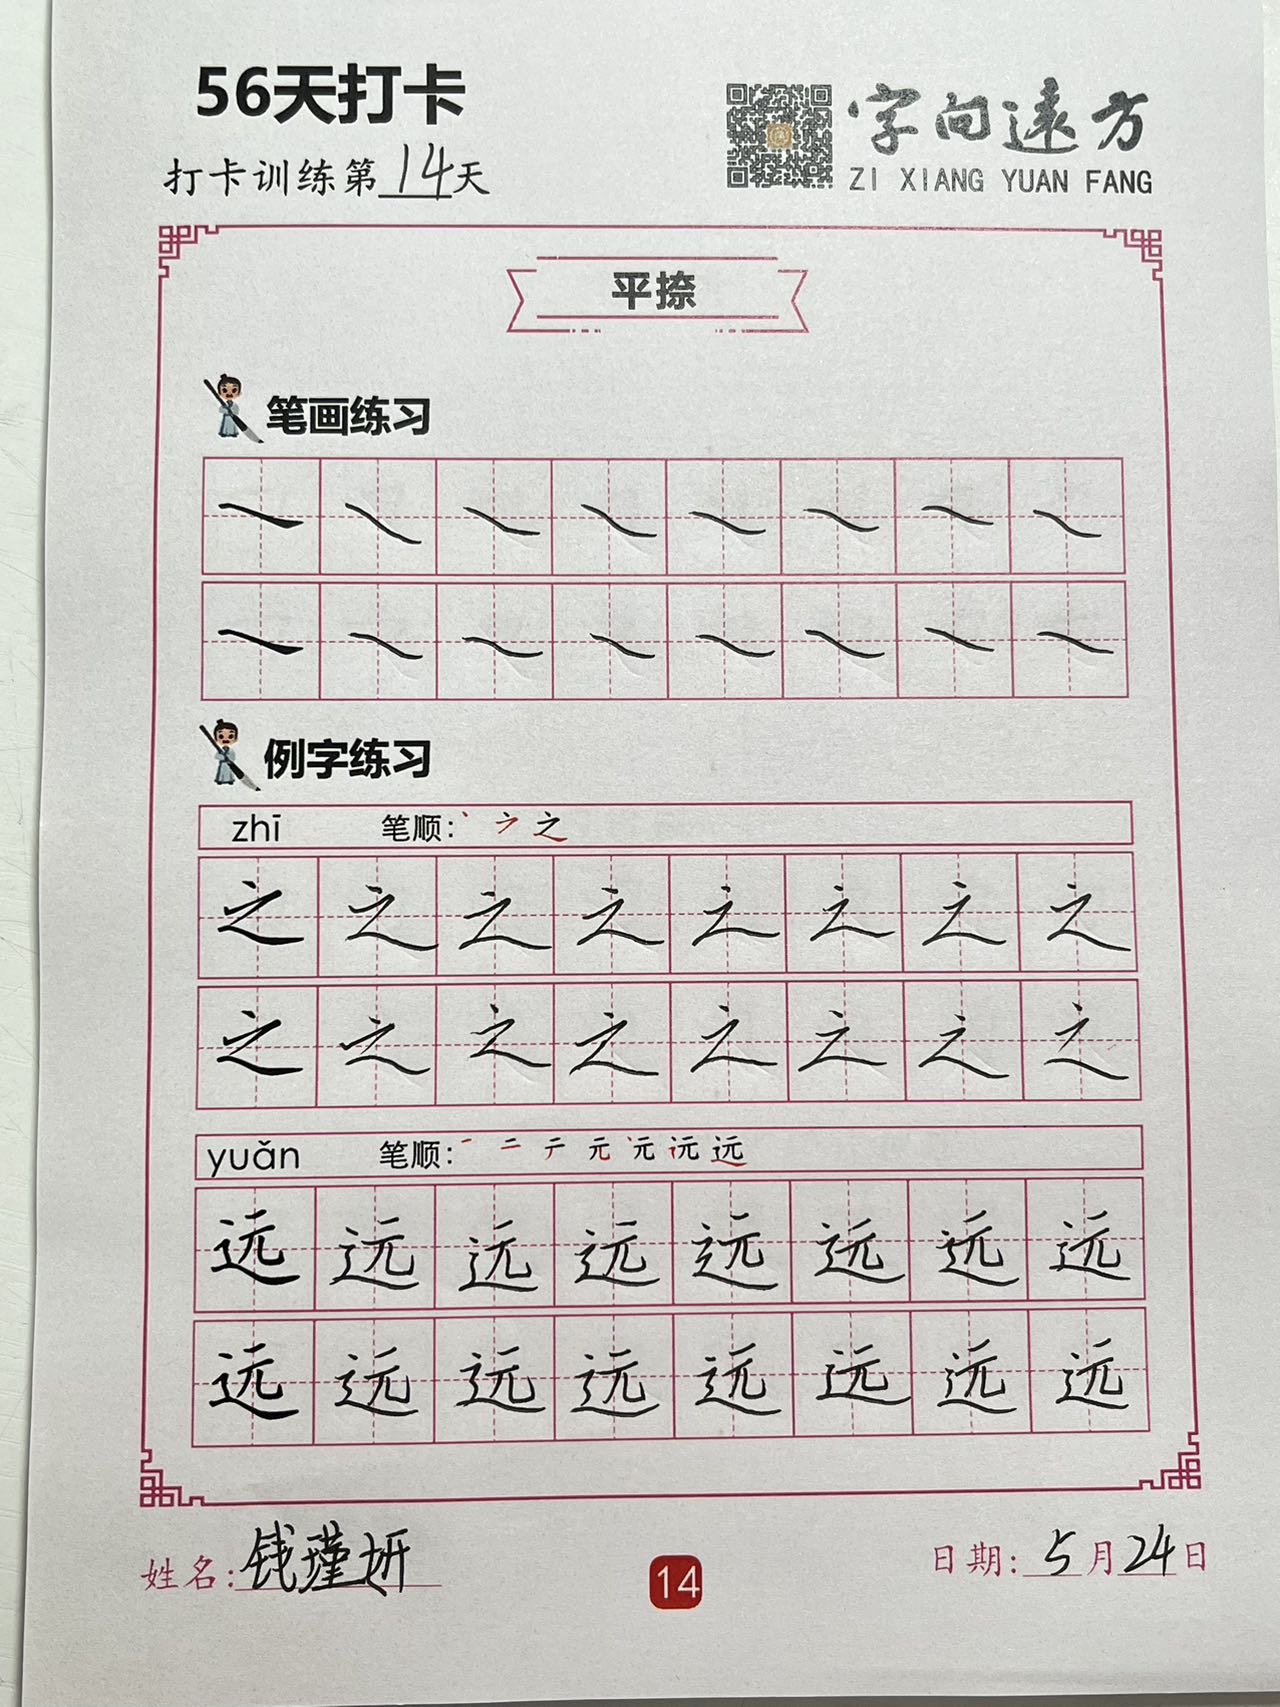 56天打卡
打卡训练第14天
字向远方
ZI XIANG YUAN FANG
平捺
笔画练习
例字练习
zhī 笔顺：丶 ㇇ 之
之 之 之 之 之 之 之 之
之 之 之 之 之 之 之 之
yuǎn 笔顺：一 二 テ 元 远 远
远 远 远 远 远 远 远 远
远 远 远 远 远 远 远 远
姓名：钱瑾妍
14
日期：5月24日